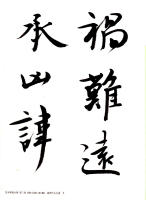 禍難遠
承山諱